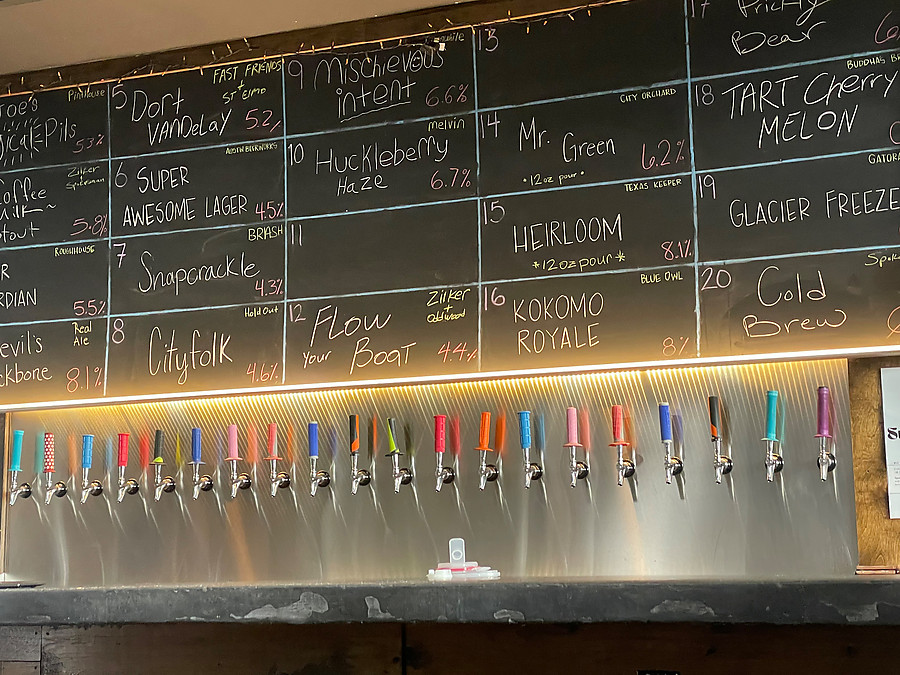 oe's
PintHouse
ical Pils
5.3%
Coffee
Zilker
Spiderman
milk~
tout
5.8%
ROUGHHOUSE
R
RDIAN
5.5%
evil's
Real
Ale
ckbone
8.1%
5
FAST FRIENDS
+
ST ELMO
Dort
VANDelay
5.2%
6
AUSTIN BEERWORKS
SUPER
AWESOME LAGER
4.5%
7
BRASH
Snapcrackle
4.3%
8
Hold Out
Cityfolk
4.6%
9
Mischievous
intent
6.6%
10
melvin
Huckleberry
Haze
6.7%
11
12
Zilker
+
Oddwood
Flow
Your Boat
4.4%
13
14
CITY ORCHARD
Mr. Green
• 12oz pour •
6.2%
15
TEXAS KEEPER
HEIRLOOM
*12oz pour*
8.1%
16
BLUE OWL
KOKOMO
ROYALE
8%
17
Prickly
Bear
6
18
BUDDHAS BR
TART Cherry
MELON
19
GATORA
GLACIER FREEZE
20
Cold
Brew